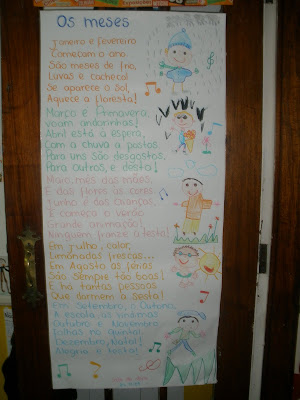 Os meses
Janeiro e fevereiro
Começam o ano.
São meses de frio,
Luvas e cachecol
Se aparece o sol,
Aquece a floresta!
Março é Primavera,
Voam andorinhas!
Abril está à espera,
Com a chuva a postos
Para uns são desgostos,
Para outros, é festa!
Maio, mês das mães,
E das flores às cores
Junho é das crianças,
E começa o verão
Grande animação!
Ninguém franze a testa!
Em julho, calor,
Limonadas frescas...
Em Agosto as férias
São sempre tão boas!
E há tantas pessoas
Que dormem a sesta!
Em Setembro, o Outono,
A escola, as vindimas
Outubro e Novembro
Folhas no quintal!
Dezembro, Natal!
Alegria e festa!